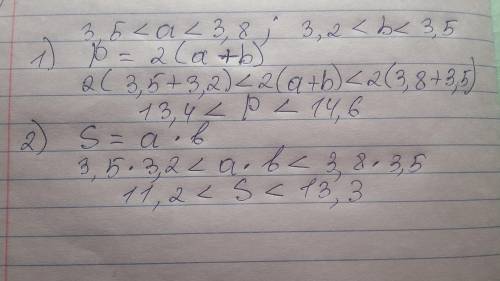 3,5 < a < 3,8 ; 3,2 < b < 3,5
1) P = 2(a+b)
2(3,5+3,2) < 2(a+b) < 2(3,8+3,5)
13,4 < P < 14,6
2) S = a · b
3,5 · 3,2 < a · b < 3,8 · 3,5
11,2 < S < 13,3